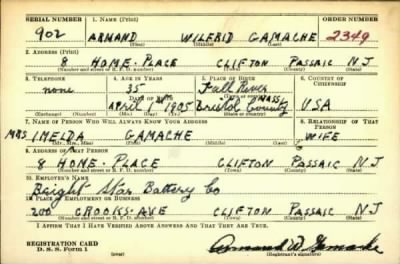 SERIAL NUMBER 1. NAME (Print) ORDER NUMBER
902 ARMAND WILFRID GAMACHE 2349
(First) (Middle) (Last)
2. ADDRESS (Print)
8 HOME-PLACE CLIFTON PASSAIC NJ
(Number and street or R. F. D. number) (Town) (County) (State)
3. TELEPHONE 4. AGE IN YEARS 5. PLACE OF BIRTH 6. COUNTRY OF CITIZENSHIP
none 35 Fall River Mass
DATE OF BIRTH
April 1 1905 Bristol County USA
7. NAME OF PERSON WHO WILL ALWAYS KNOW YOUR ADDRESS 8. RELATIONSHIP OF THAT PERSON
MRS. IMELDA GAMACHE WIFE
(Mr., Mrs., Miss) (First) (Middle) (Last)
9. ADDRESS OF THAT PERSON
8 HOME-PLACE CLIFTON PASSAIC NJ
(Number and street or R. F. D. number) (Town) (County) (State)
10. EMPLOYER'S NAME
Bright Star Battery Co
11. PLACE OF EMPLOYMENT OR BUSINESS
200 CROOKS-AVE CLIFTON PASSAIC NJ
(Number and street or R. F. D. number) (Town) (County) (State)
I AFFIRM THAT I HAVE VERIFIED ABOVE ANSWERS AND THAT THEY ARE TRUE.
REGISTRATION CARD
D. S. S. Form 1 Armand W. Gamache
(Registrant's signature)